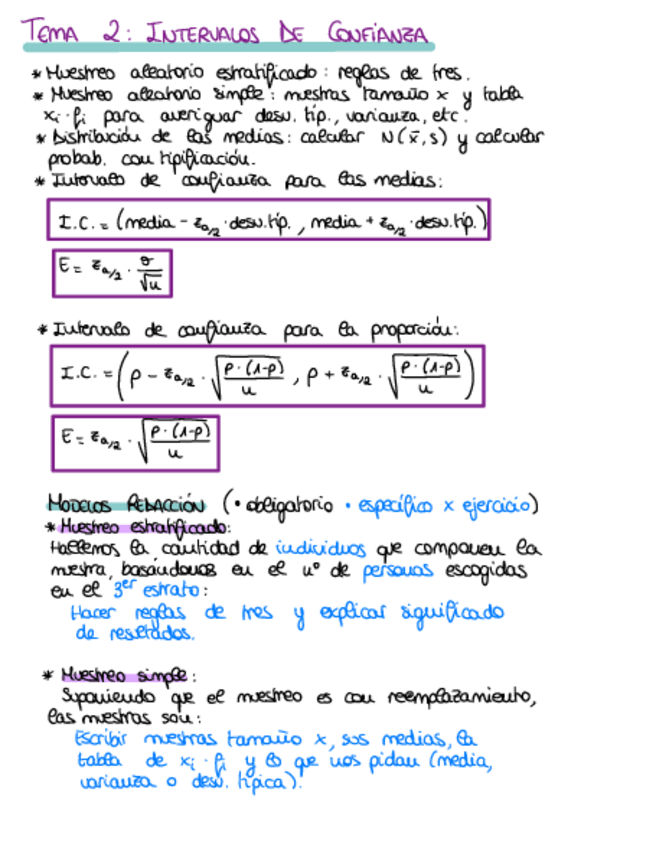 TEMA 2: INTERVALOS DE CONFIANZA
* Muestreo aleatorio estratificado: reglas de tres.
* Muestreo aleatorio simple: muestras tamaño x y tabla
xi · fi para averiguar desv. típ., varianza, etc.
* Distribución de las medias: calcular N(x̄, s) y calcular
probab. con tipificación.
* Intervalo de confianza para las medias:
I.C. = (media - z_{α/2} · desv.típ. , media + z_{α/2} · desv.típ.)
E = z_{α/2} · σ/√n
* Intervalo de confianza para la proporción:
I.C. = (p - z_{α/2} · √(p·(1-p)/n) , p + z_{α/2} · √(p·(1-p)/n))
E = z_{α/2} · √(p·(1-p)/n)
MODELOS REDACCIÓN (• obligatorio • específico x ejercicio)
* Muestreo estratificado:
Hallemos la cantidad de individuos que componen la
mestra, basándonos en el nº de personas escogidas
en el 3er estrato:
Hacer reglas de tres y explicar significado
de resultados.
* Muestreo simple:
Suponiendo que el muestreo es con reemplazamiento,
las muestras son:
Escribir muestras tamaño x, sus medias, la
tabla de xi · fi y lo que nos pidan (media,
varianza o desv. típica).